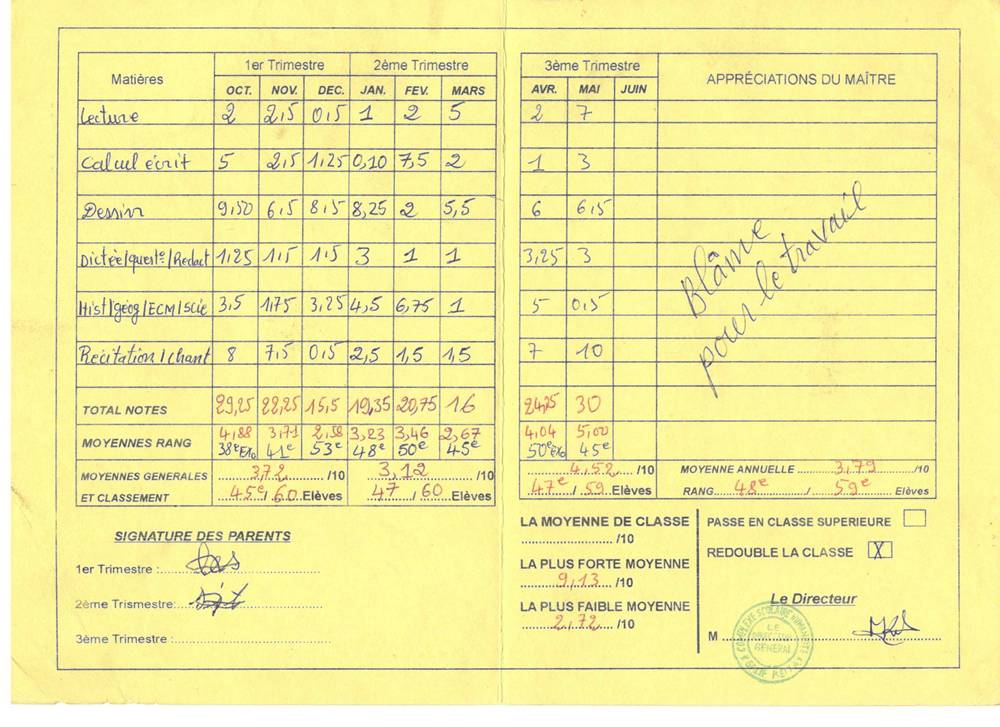 1er Trimestre 2ème Trimestre
Matières OCT. NOV. DEC. JAN. FEV. MARS
Lecture 2 2,5 0,5 1 2 5
Calcul écrit 5 2,5 1,25 0,10 7,5 2
Dessin 9,50 6,5 8,5 8,25 2 5,5
Dictée/questº/Redact 1,25 1,5 1,5 3 1 1
Hist/géog/ECM/Scie 3,5 1,75 3,25 4,5 6,75 1
Récitation/chant 8 7,5 0,5 2,5 1,5 1,5
TOTAL NOTES 29,25 22,25 15,5 19,35 20,75 16
MOYENNES RANG 4,88 3,71 2,58 3,23 3,46 2,67
38e Exo 41e 53e 48e 50e 45e
MOYENNES GENERALES 3,72 /10 3,12 /10
ET CLASSEMENT 45e / 60 Elèves 47 / 60 Elèves
SIGNATURE DES PARENTS
1er Trimestre :
2ème Trismestre:
3ème Trimestre :
3ème Trimestre APPRÉCIATIONS DU MAÎTRE
AVR. MAI JUIN
2 7
1 3
6 6,5
3,25 3
5 0,5
7 10
24,25 30
4,04 5,00
50e Exo 45e
Blâme
pour le travail
4,52 /10 MOYENNE ANNUELLE 3,79 /10
47e / 59 Elèves RANG 48e / 59e Elèves
LA MOYENNE DE CLASSE
/10
LA PLUS FORTE MOYENNE
9,13 /10
LA PLUS FAIBLE MOYENNE
2,72 /10
PASSE EN CLASSE SUPERIEURE
REDOUBLE LA CLASSE X
Le Directeur
M
COMPLEXE SCOLAIRE
LE
GENERAL